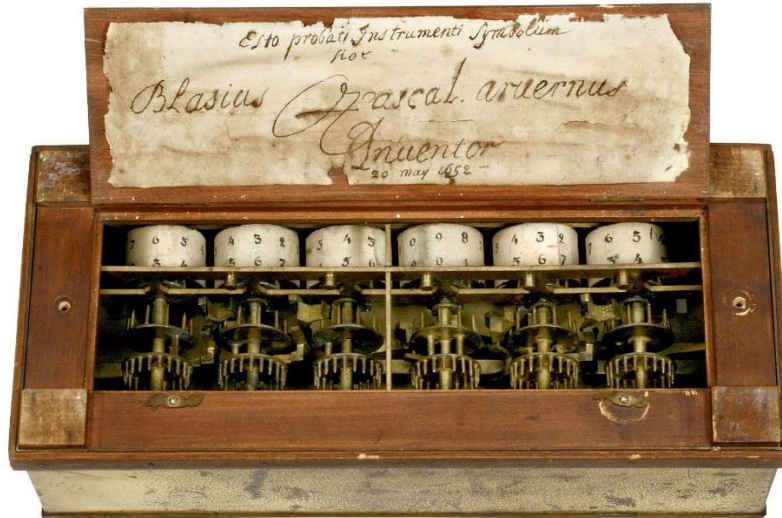 Esto probati Instrumenti Symbolum
hoc
Blasius Pascal. arvernus
Inventor
20 may 1652
7 6 5 4 3 2 5 4 3 0 9 8 5 4 3 2 7 6 5
3 4 5 6 7 5 6 0 1 5 6 7 3 4